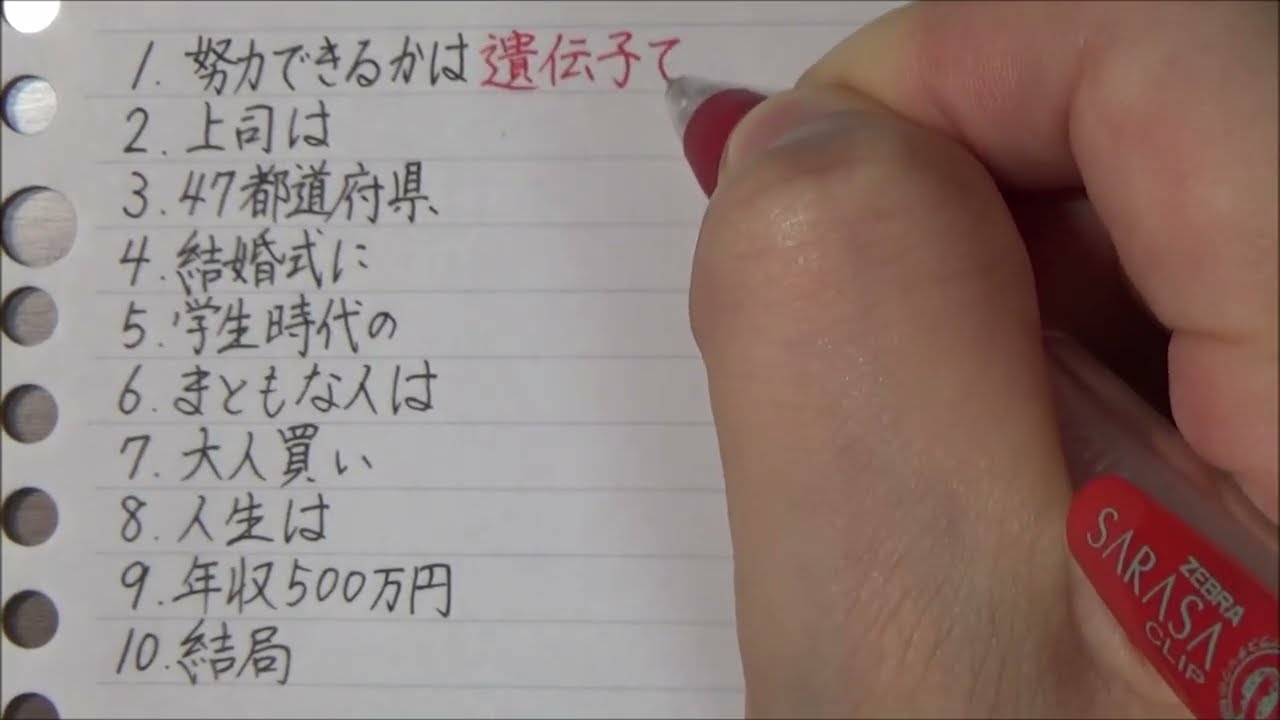 1. 努力できるかは遺伝子て
2. 上司は
3. 47都道府県
4. 結婚式に
5. 学生時代の
6. まともな人は
7. 大人買い
8. 人生は
9. 年収500万円
10. 結局
ZEBRA
SARASA
CLIP